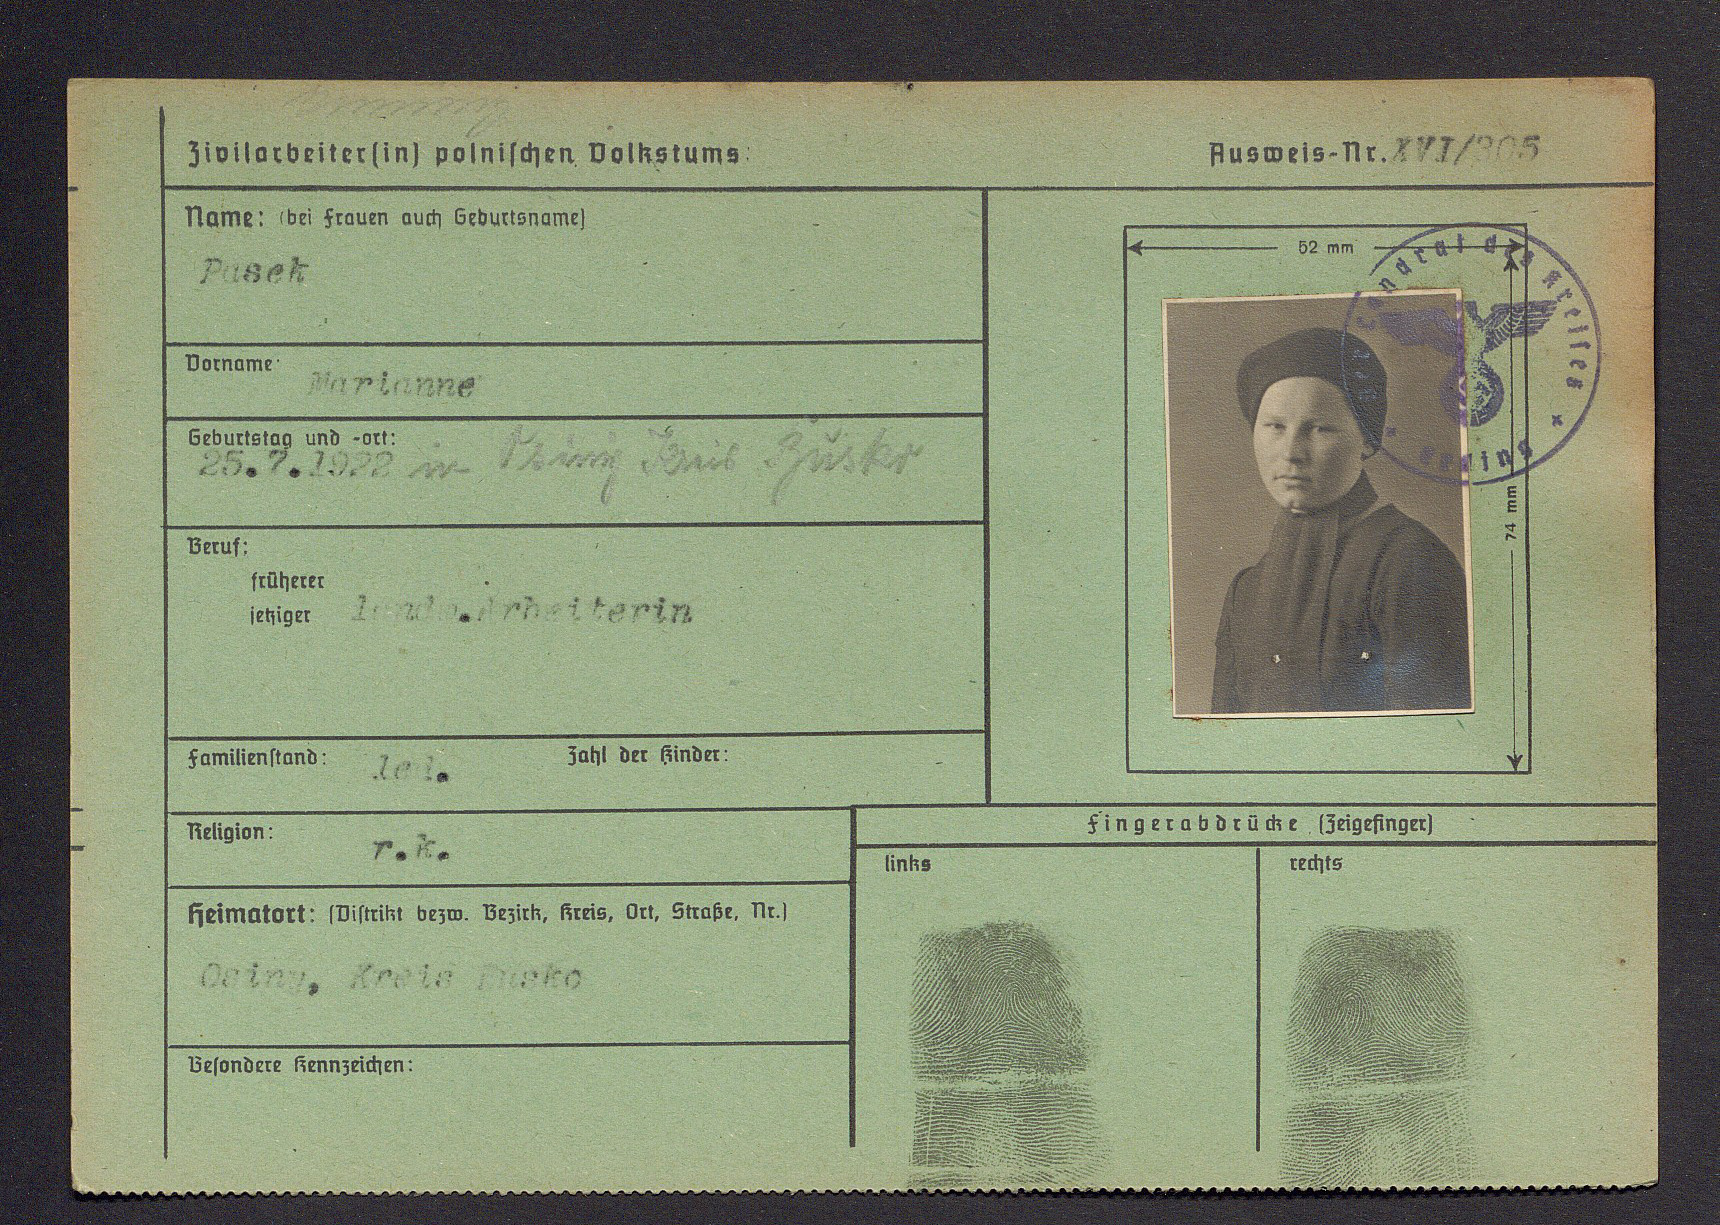 Zivilarbeiter(in) polnischen Volkstums:
Ausweis-Nr. XVI/305
Name: (bei Frauen auch Geburtsname)
Pasek
Vorname
Marianne
Geburtstag und -ort:
25.7.1922 in Osiny Kreis Busko
Beruf:
früherer
jetziger landw.Arbeiterin
Familienstand: led. Zahl der Kinder:
Religion: r.k.
Heimatort: (Distrikt bezw. Bezirk, Kreis, Ort, Straße, Nr.)
Osiny, Kreis Busko
Besondere Kennzeichen:
52 mm
74 mm
Der Landrat des Kreises
Fingerabdrücke (Zeigefinger)
links
rechts